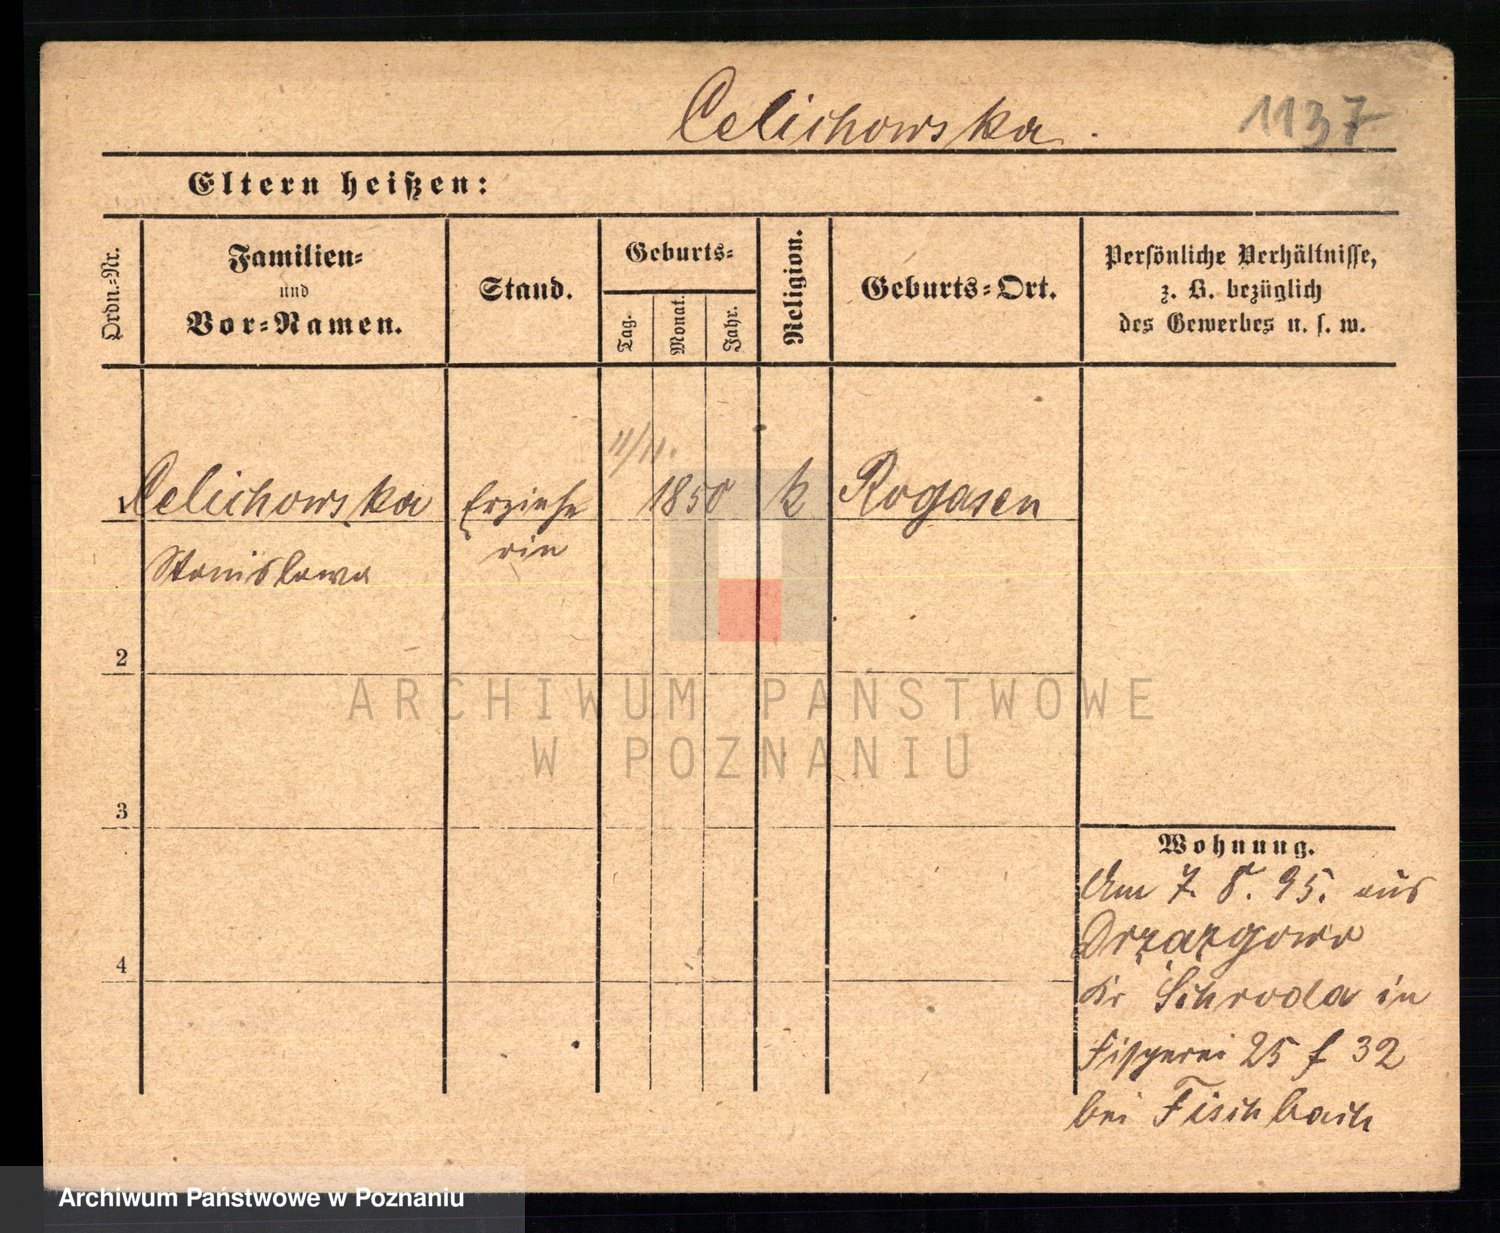 Celichowska.
1137
Eltern heißen:
Ordn.-Nr.
Familien-
und
Vor-Namen.
Stand.
Geburts-
Tag.
Monat.
Jahr.
Religion.
Geburts-Ort.
Persönliche Verhältnisse,
z. B. bezüglich
des Gewerbes u. s. w.
11/11.
1 Celichowska Erziehe 1850 k Rogasen
Stanislawa rin
2
3
4
Wohnung.
Am 7. 8. 95. aus
Drzazgowo
Kr Schroda in
Fischerei 25 f 32
bei Fischbach
ARCHIWUM PAŃSTWOWE
W POZNANIU
Archiwum Państwowe w Poznaniu